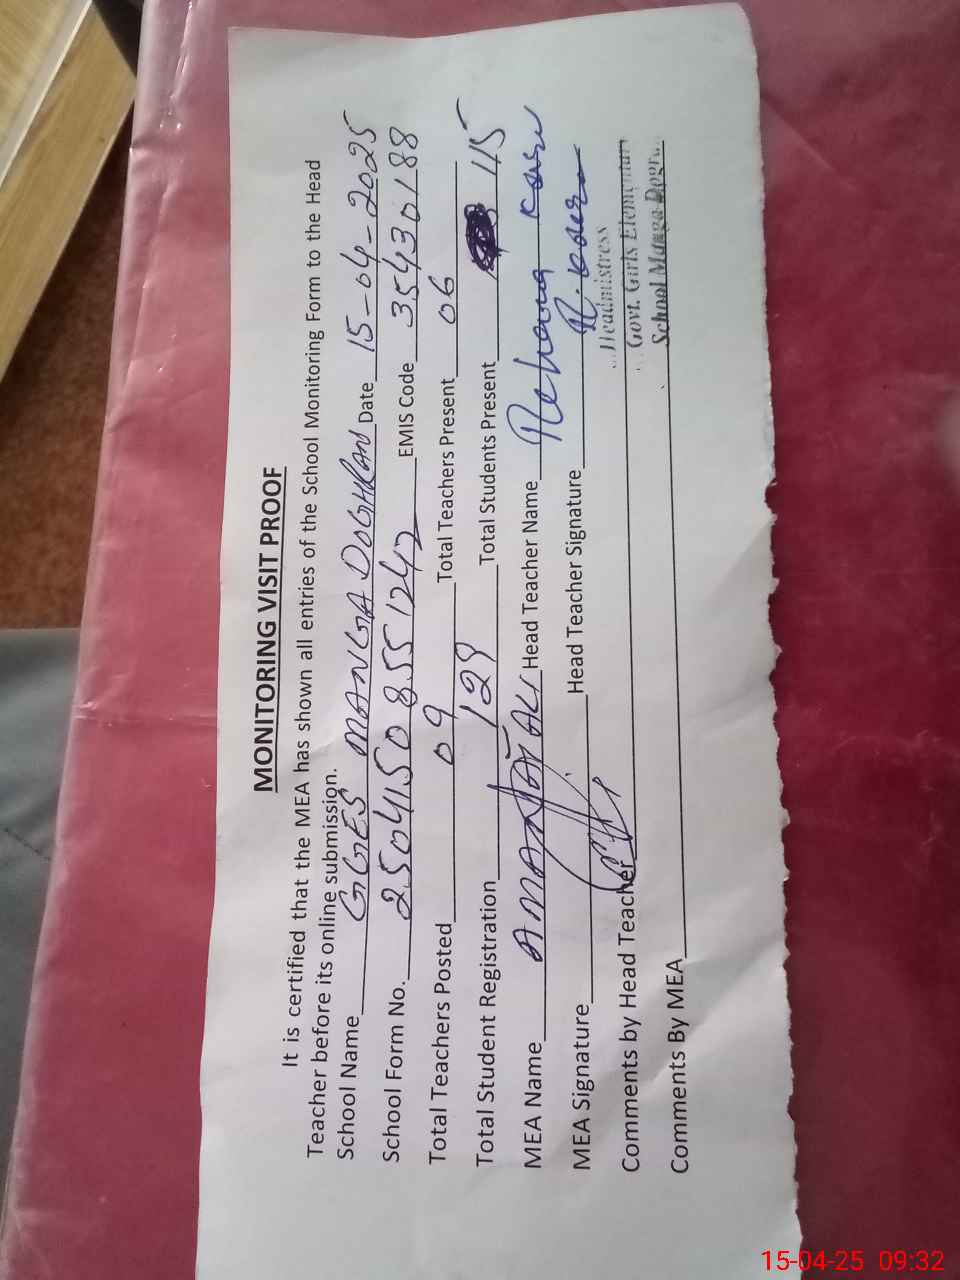 MONITORING VISIT PROOF
It is certified that the MEA has shown all entries of the School Monitoring Form to the Head
Teacher before its online submission.
School Name GGES MANGA DOGHRAN Date 15-04-2025
School Form No. 25041508551242 EMIS Code 35430188
Total Teachers Posted 09 Total Teachers Present 06
Total Student Registration 129 Total Students Present 115
MEA Name AMANAT ALI Head Teacher Name Rehana Kausar
MEA Signature Head Teacher Signature R. Kausar
Headmistress
Comments by Head Teacher Govt. Girls Elementary
School Manga Dogra
Comments By MEA
15-04-25 09:32